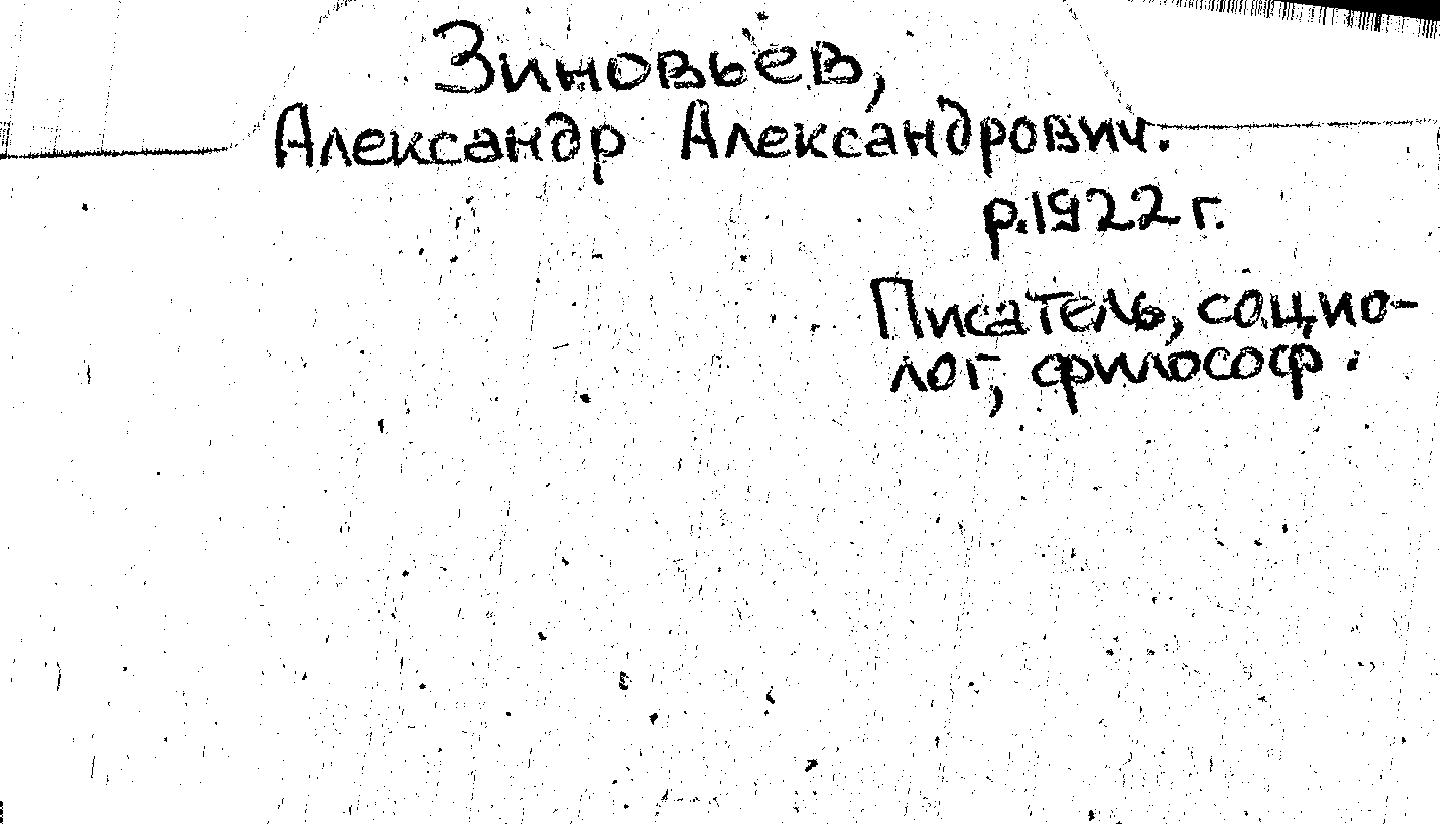 Зиновьев,
Александр Александрович.
р.1922 г.
Писатель, социо-
лог, философ.